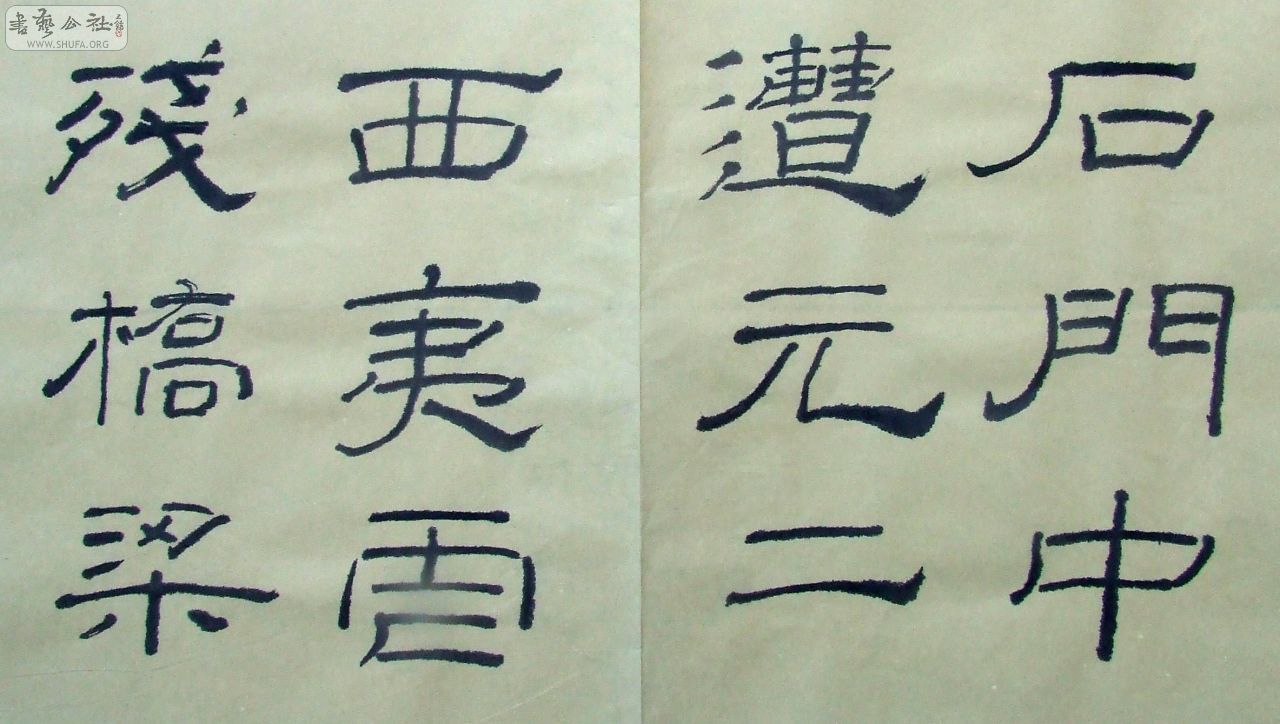 石門中
遭元二
西夷虐
殘橋梁
書藝公社
WWW.SHUFA.ORG